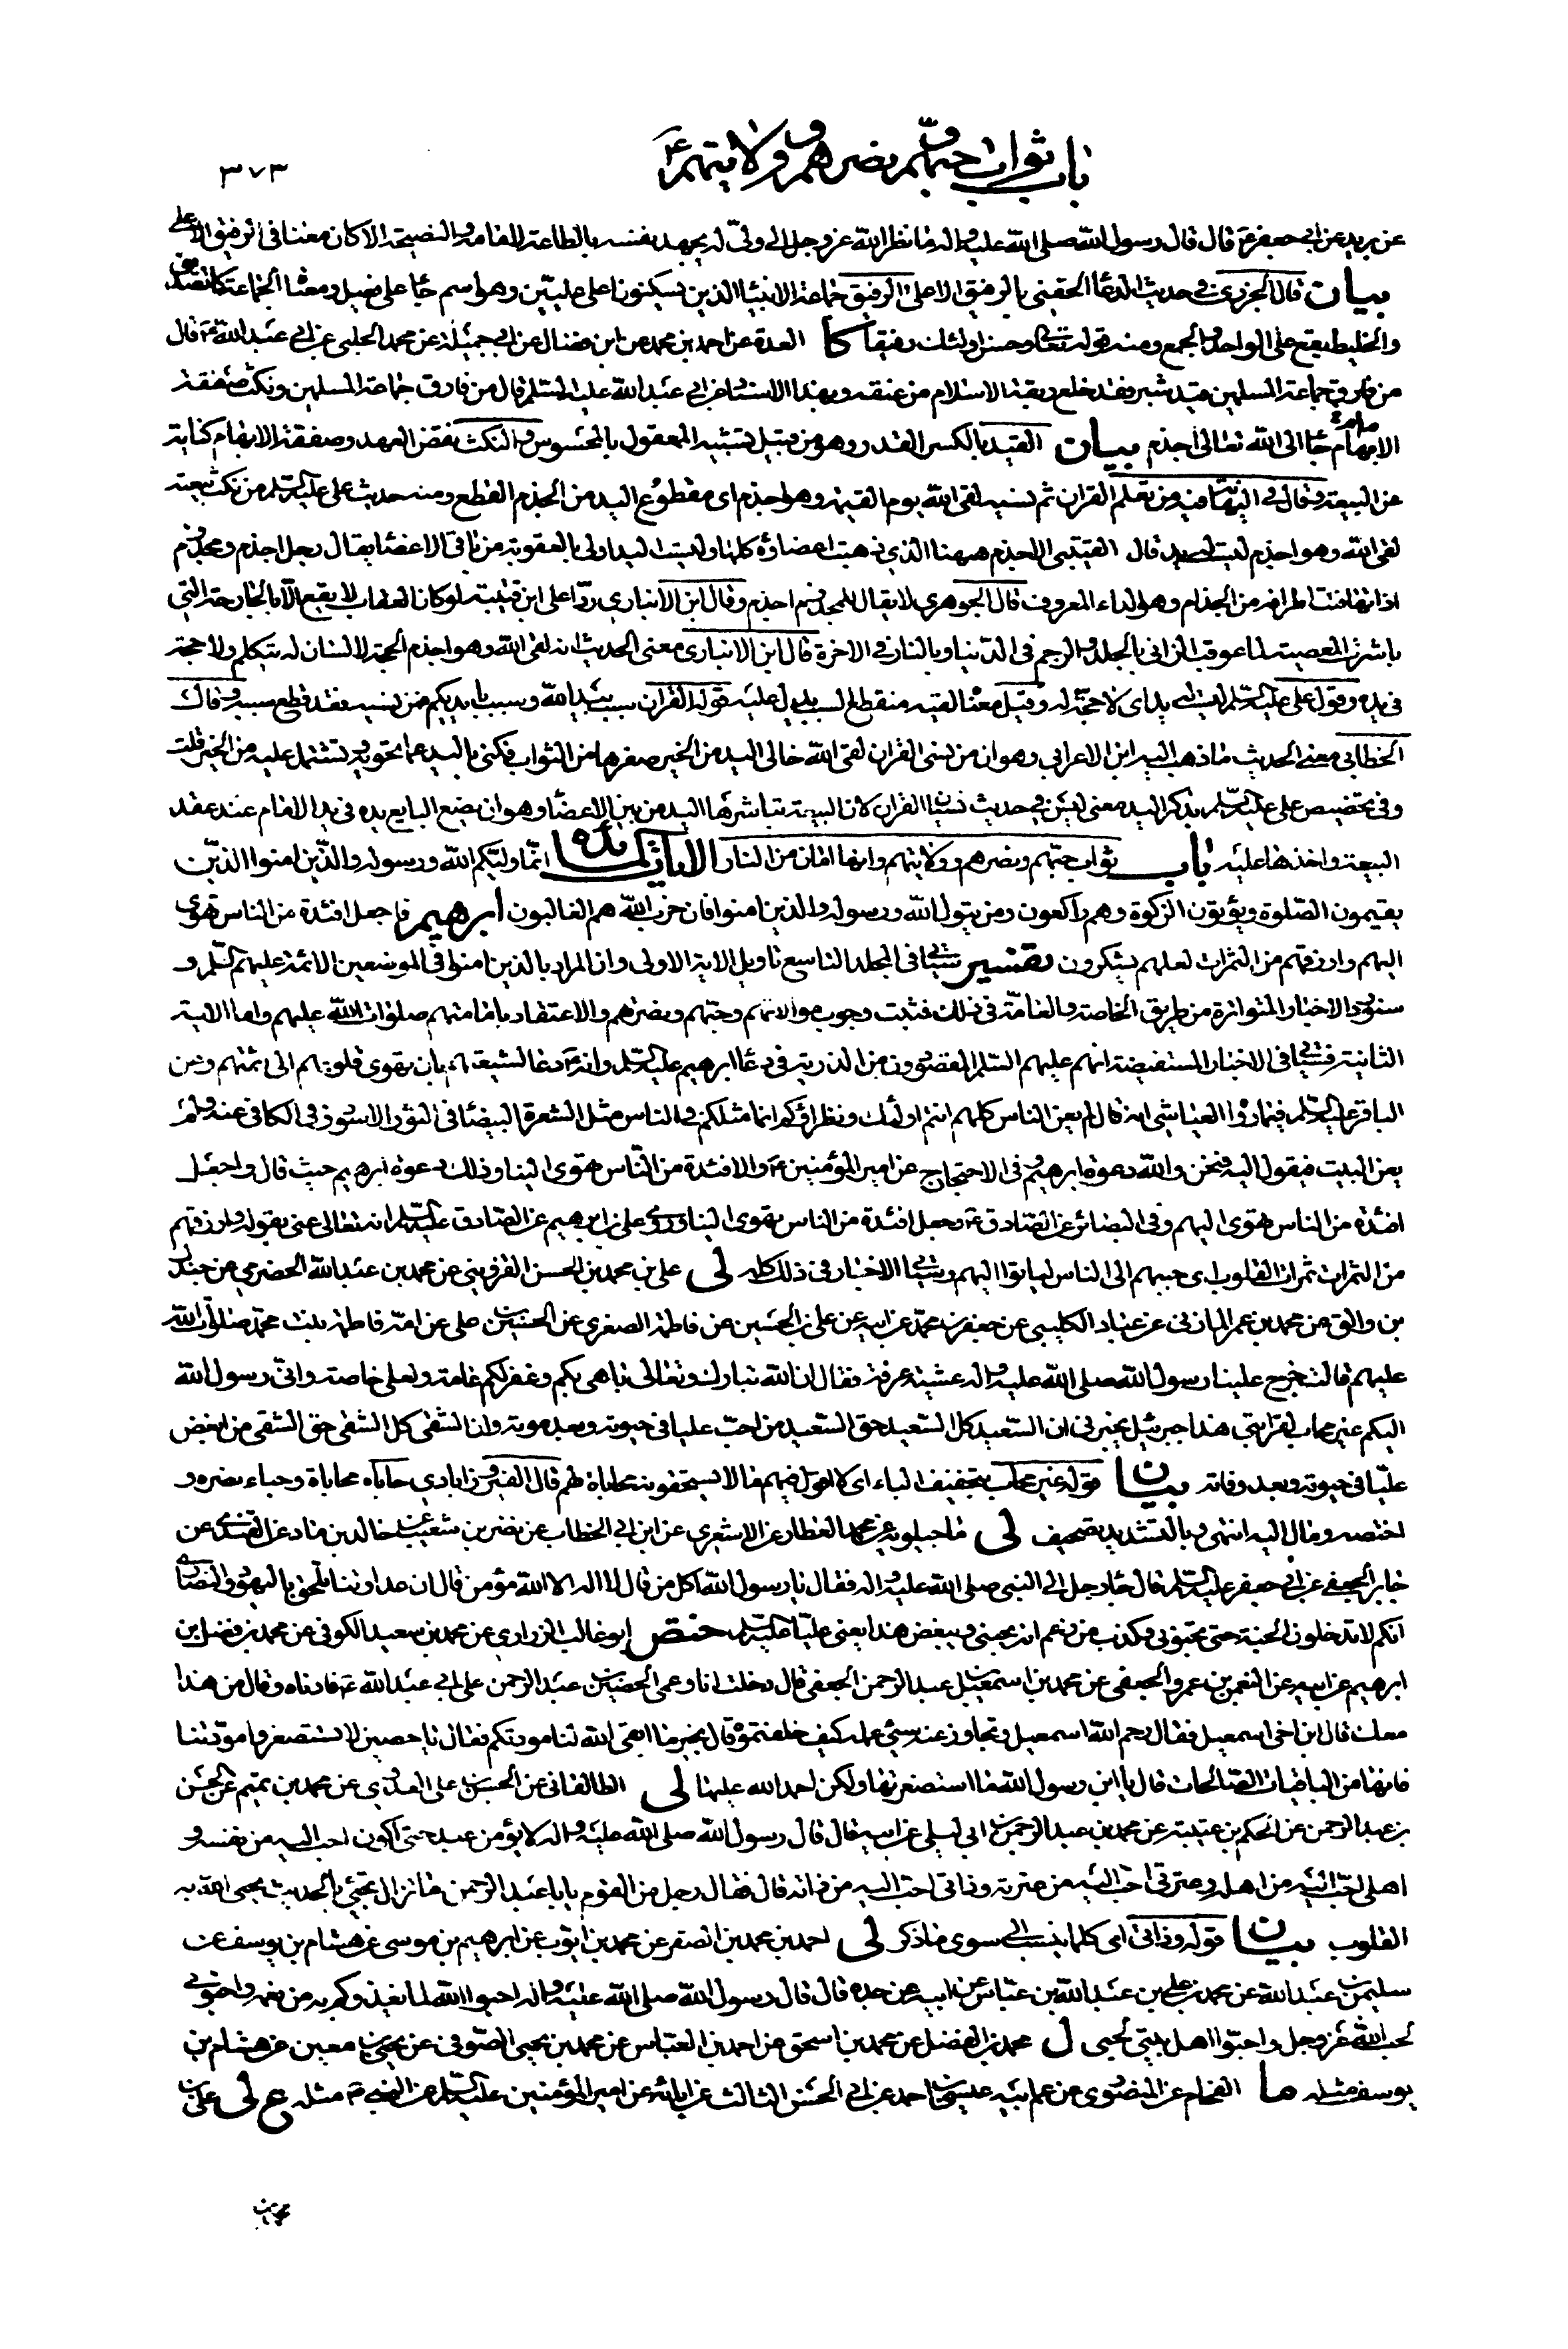 باب ثواب حبهم و نصرهم و ولايتهم ع
٣٧٣
عن بريد عن ابي جعفر ع قال قال رسول الله صلى الله عليه واله ما نظر الله عز وجل الى ولي له يجهد نفسه بالطاعة لامامه والنصيحة الا كان معنا فى الرفيق الاعلى
بيان قال الجزري في حديث الدعاء الحقني بالرفيق الاعلى الرفيق جماعة الانبياء الذين يسكنون اعلى عليين وهو اسم جاء على فعيل ومعناه الجماعة كالصديق
والخليط يقع على الواحد والجمع ومنه قوله تعالى وحسن اولئك رفيقا كا العدة عن احمد بن محمد عن ابن فضال عن ابي جميلة عن محمد الحلبي عن ابي عبد الله ع قال
من فارق جماعة المسلمين قيد شبر فقد خلع ربقة الاسلام من عنقه وبهذا الاسناد عن ابي عبد الله عليه السلم قال من فارق جماعة المسلمين ونكث صفقة
الابهام جاء الى الله تعالى اجذم بيان القيد بالكسر القدر وهو من قبيل تشبيه المعقول بالمحسوس والنكث نقض العهد وصفقة الابهام كناية
عن البيعة وقال في النهاية فيه من تعلم القران ثم نسيه لقى الله يوم القيمة وهو اجذم اى مقطوع اليد من الجذم القطع ومنه حديث علي عليه السلم من نكث بيعته
لقى الله وهو اجذم ليست له يد قال القتيبي الاجذم ههنا الذي ذهبت اعضاؤه كلها وليست اليد اولى بالعقوبة من باقي الاعضاء يقال رجل اجذم ومجذوم
اذا تهافتت اطرافه من الجذام وهو الداء المعروف قال الجوهري لا يقال للمجذوم اجذم وقال ابن الانباري ردا على ابن قتيبة لو كان العقاب لا يقع الا بالجارحة التي
باشرت المعصية لما عوقب الزاني بالجلد والرجم في الدنيا وبالنار في الاخرة قال ابن الانباري معنى الحديث انه لقى الله وهو اجذم الحجة لا لسان له يتكلم ولا حجة
في يده وقول علي عليه السلم ليست له يد اى لا حجة له وقيل معناه لقيه منقطع السبب يدل عليه قوله القران سبب بيد الله وسبب بايديكم فمن نسيه فقد قطع سببه وقال
الخطابي معنى الحديث ما ذهب اليه ابن الاعرابي وهو ان من نسى القران لقى الله خالي اليد من الخير صفرها من الثواب فكنى باليد عما تحويه وتشتمل عليه من الخير قلت
وفي تخصيص علي عليه السلم بذكر اليد معنى ليس في حديث نسيان القران لان البيعة تباشرها اليد من بين الاعضاء وهو ان يضع البايع يده في يد الامام عند عقد
البيعة واخذها عليه باب ثواب حبهم ونصرهم وولايتهم وانها امان من النار الايات المائدة انما وليكم الله ورسوله والذين امنوا الذين
يقيمون الصلوة ويؤتون الزكوة وهم راكعون ومن يتول الله ورسوله والذين امنوا فان حزب الله هم الغالبون ابرهيم فاجعل افئدة من الناس تهوى
اليهم وارزقهم من الثمرات لعلهم يشكرون تفسير سياتى في المجلد التاسع تاويل الاية الاولى وان المراد بالذين امنوا في الموضعين الائمة عليهم السلم و
سنورد الاخبار المتواترة من طريق الخاصة والعامة في ذلك فثبت وجوب موالاتهم وحبهم ونصرهم والاعتقاد بامامتهم صلوات الله عليهم واما الاية
الثانية فسياتى في الاخبار المستفيضة انهم عليهم السلم المقصودون من الذرية في دعاء ابرهيم عليه السلم وانه ع دعا لشيعتهم بان تهوى قلوبهم الى ائمتهم وعن
الباقر عليه السلم فيما رواه العياشي انه قال لم يعن الناس كلهم انتم اولئك ونظراؤكم انما مثلكم في الناس مثل الشعرة البيضاء في الثور الاسود في الكافى عنه ولم
يعن البيت فيقول اليه فنحن والله دعوة ابرهيم وفى الاحتجاج عن امير المؤمنين ع والافئدة من الناس تهوى الينا وذلك دعوة ابرهيم حيث قال واجعل
افئدة من الناس تهوى اليهم وفي البصائر عن الصادق ع فجعل افئدة من الناس تهوى الينا وروى علي بن ابرهيم عن الصادق عليه السلم انه تعالى عنى بقوله وارزقهم
من الثمرات ثمرات القلوب اى حببهم الى الناس لياتوا اليهم وسياتى الاخبار في ذلك كله لى علي بن محمد بن الحسن القزويني عن محمد بن عبد الله الحضرمي عن جندل
بن والق عن محمد بن عمر المازني عن عباد الكليبي عن جعفر بن محمد عن ابيه عن علي بن الحسين عن فاطمة الصغرى عن الحسين بن علي عن امه فاطمة بنت محمد صلوات الله
عليهم قالت خرج علينا رسول الله صلى الله عليه واله عشية عرفة فقال ان الله تبارك وتعالى باهى بكم وغفر لكم عامة ولعلي خاصة واني رسول الله
اليكم غير محاب لقرابتي هذا جبرئيل يخبرني ان السعيد كل السعيد حق السعيد من احب عليا في حيوته وبعد موته وان الشقى كل الشقى حق الشقى من ابغض
عليا في حيوته وبعد وفاته بيان قوله غير محاب بتخفيف الباء اى لا اقول فيهم ما لا يستحقونه محاباة لهم قال الفيروزابادي حاباه محاباة وحباء نصره و
اختصه ومال اليه انتهى وبالتشديد تصحيف لى ماجيلويه عن محمد العطار عن الاشعري عن ابن ابي الخطاب عن نضر بن شعيب عن خالد بن ماد عن القندي عن
جابر الجعفي عن ابي جعفر عليه السلم قال جاء رجل الى النبي صلى الله عليه واله فقال يا رسول الله اكل من قال لا اله الا الله مؤمن قال ان عداوتنا تلحق باليهود والنصارى
انكم لا تدخلون الجنة حتى تحبوني وكذب من زعم انه يحبني ويبغض هذا يعني عليا عليه السلم ختص ابو غالب الزراري عن محمد بن سعيد الكوفي عن محمد بن فضل بن
ابرهيم عن ابيه عن النعمن بن عمرو الجعفي عن محمد بن اسمعيل بن عبد الرحمن الجعفي قال دخلت انا وعمي الحصين بن عبد الرحمن على ابي عبد الله ع فادناه وقال من هذا
معك قال ابن اخي اسمعيل فقال رحم الله اسمعيل وتجاوز عنه سيئ عمله كيف خلفتموه قال بخير ما ابقى الله لنا مودتكم فقال يا حصين لا تستصغروا مودتنا
فانها من الباقيات الصالحات قال يا ابن رسول الله ما استصغرتها ولكن احمد الله عليها لى الطالقاني عن الحسن بن علي العدوي عن محمد بن تميم عن الحسن
بن عبد الرحمن عن الحكم بن عتيبة عن محمد بن عبد الرحمن بن ابي ليلى عن ابيه قال قال رسول الله صلى الله عليه واله لا يؤمن عبد حتى اكون احب اليه من نفسه و
اهلي احب اليه من اهله وعترتي احب اليه من عترته وذاتي احب اليه من ذاته قال فقال رجل من القوم يا با عبد الرحمن ما تزال تجيئ بالحديث يحيى الله به
القلوب بيان قوله وذاتى اى كلما ينسب الى سوى ما ذكر لى احمد بن محمد بن الصقر عن محمد بن ايوب عن ابرهيم بن موسى عن هشام بن يوسف عن
سليمن بن عبد الله عن محمد بن علي بن عبد الله بن عباس عن ابيه عن جده قال قال رسول الله صلى الله عليه واله احبوا الله لما يغذوكم به من نعمه واحبوني
لحب الله عز وجل واحبوا اهل بيتي لحبي ل محمد بن الفضل عن محمد بن اسحق عن احمد بن العباس عن محمد بن يحيى الصوفي عن يحيى بن معين عن هشام بن
يوسف مثله ما الفحام عن المنصوري عن عم ابيه عيسى بن احمد عن ابي الحسن الثالث عن ابائه عن امير المؤمنين عليه السلم عن النبي ص مثله ع لى علي بن
محمد بن